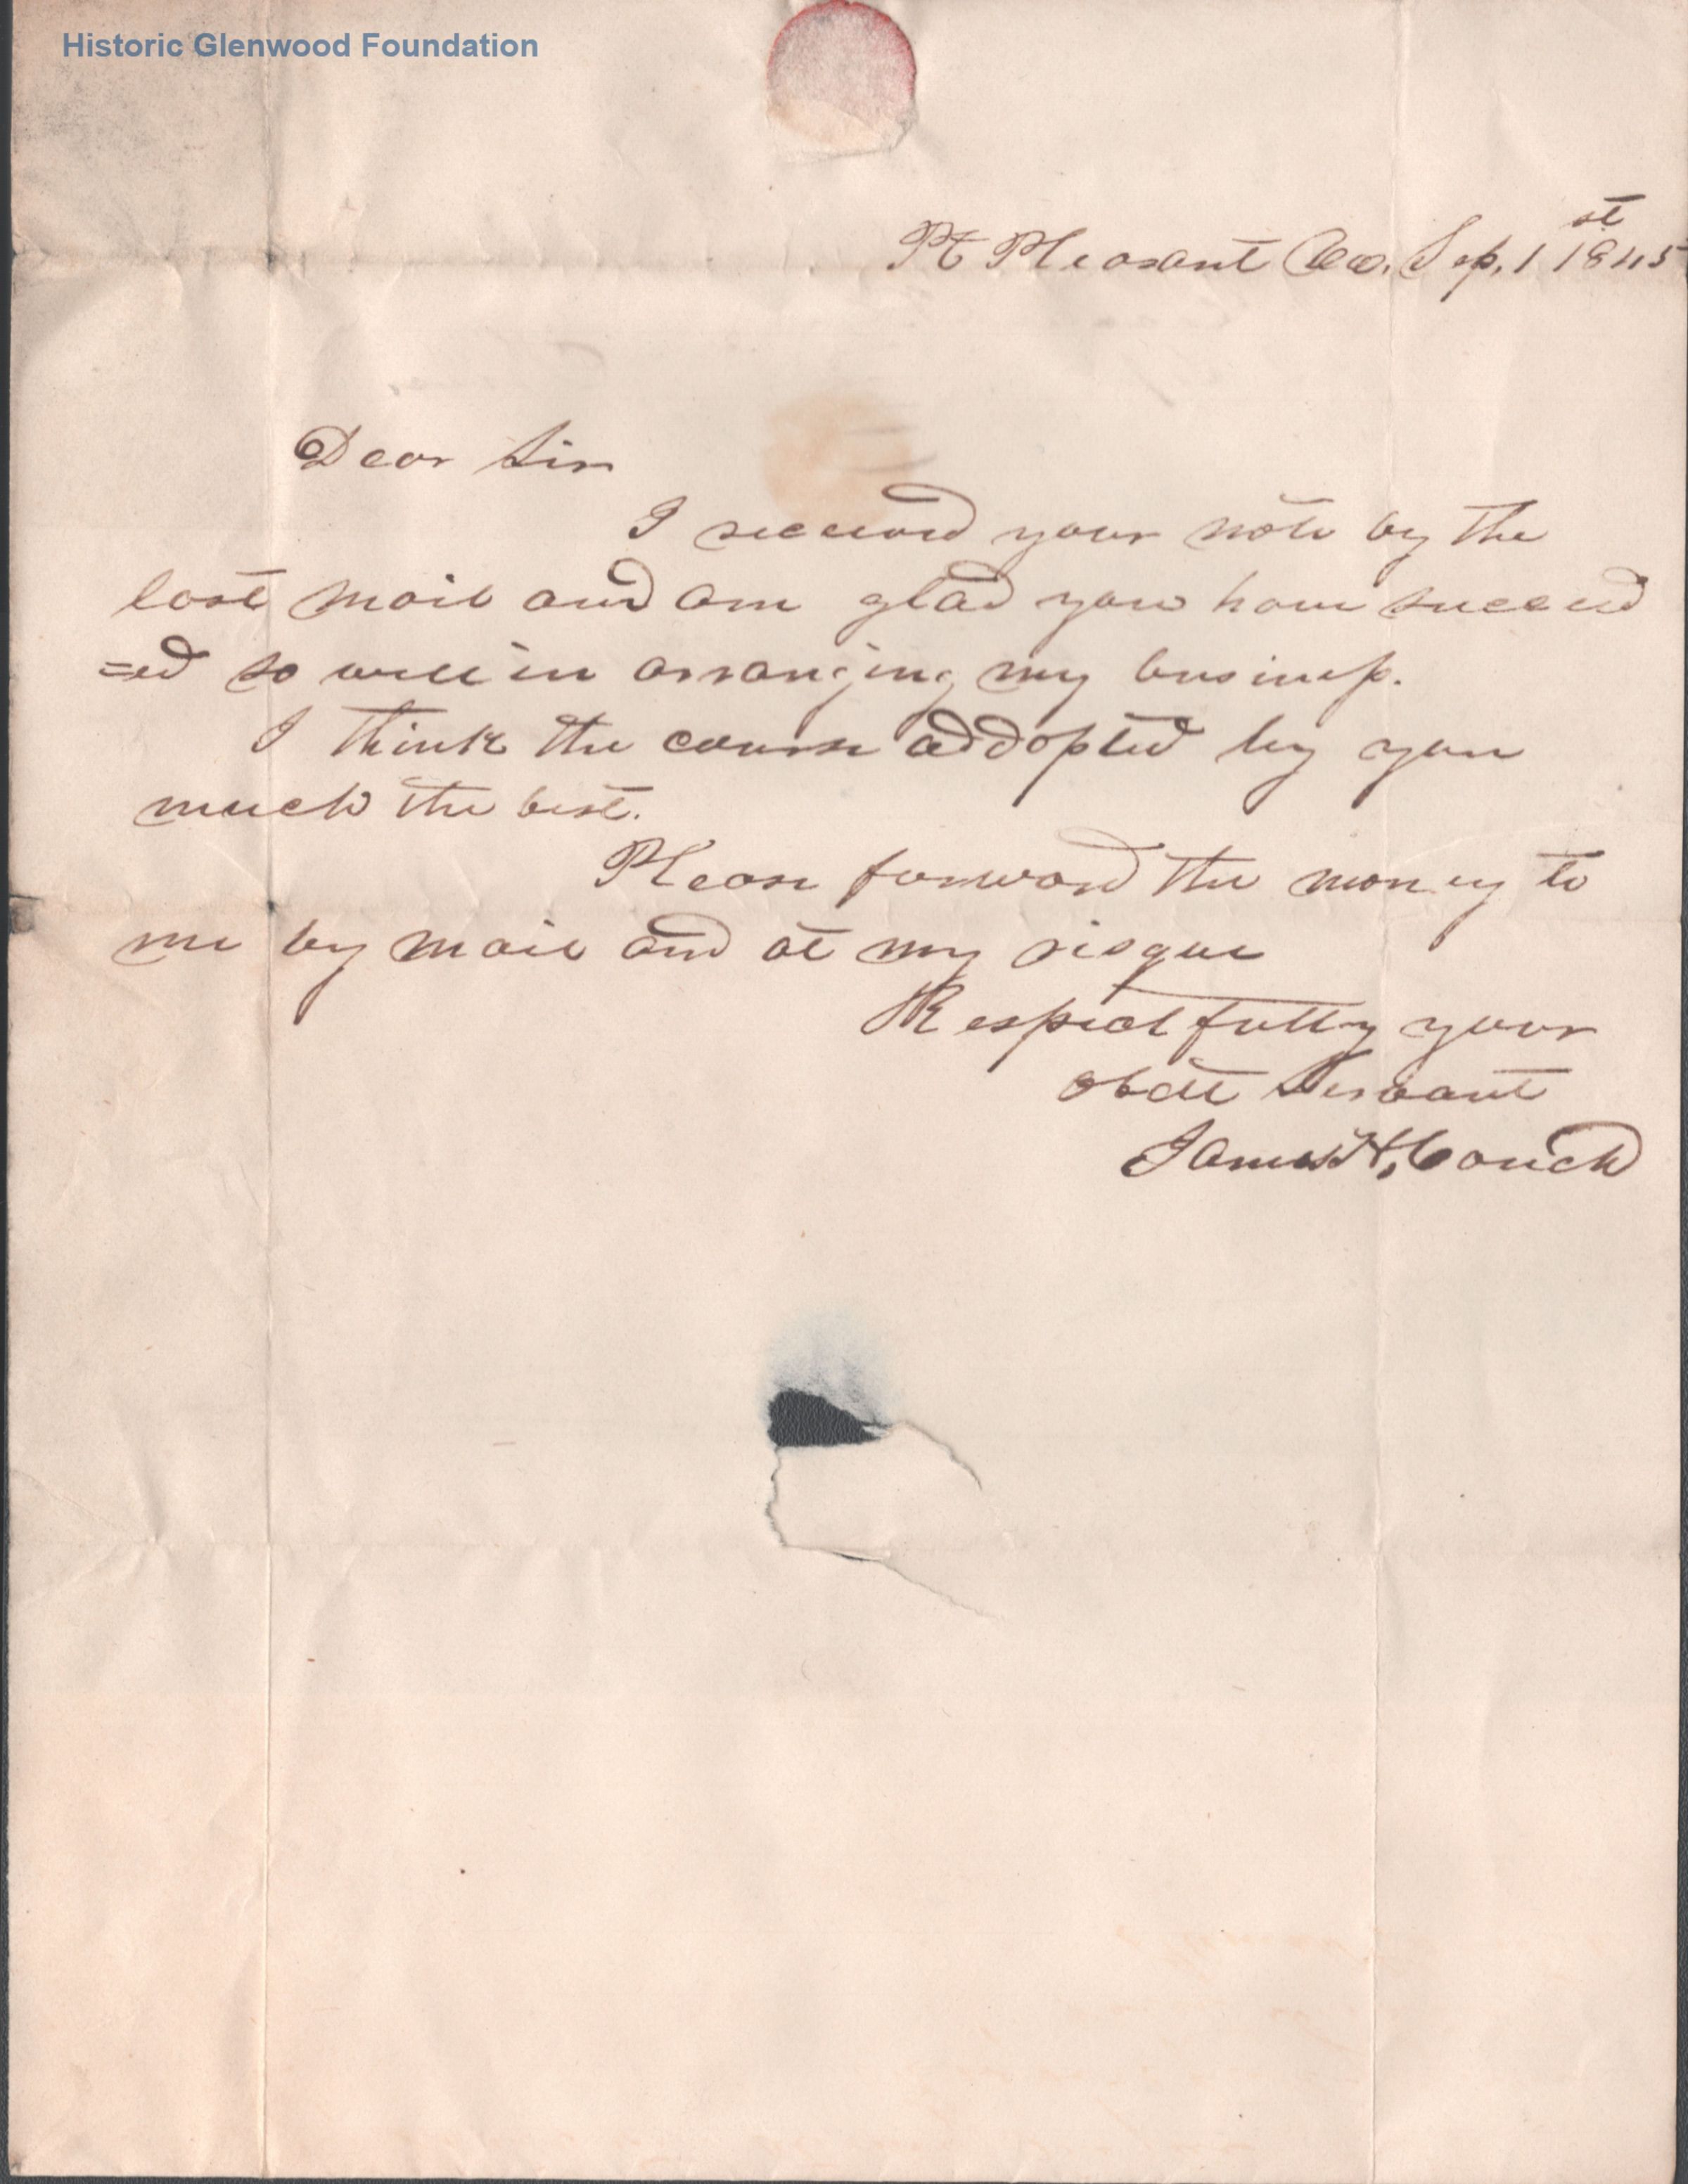 Historic Glenwood Foundation
Pt Pleasant Sep. 1st 1845
Dear Sir
I received your note by the
last mail and am glad you have succeed
=ed so well in arranging my business.
I think the course addopted by you
much the best.
Please forward the money to
me by mail and at my risque
Respectfully your
obdt Servant
James H. Couch